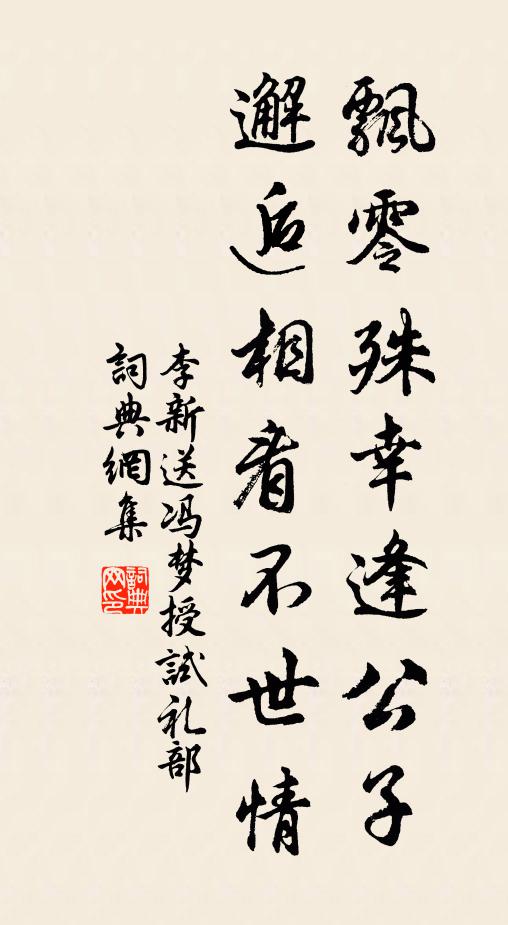 飄零殊幸逢公子
邂逅相看不世情
李新送冯梦授試礼部
詞典網集
詞典
网印